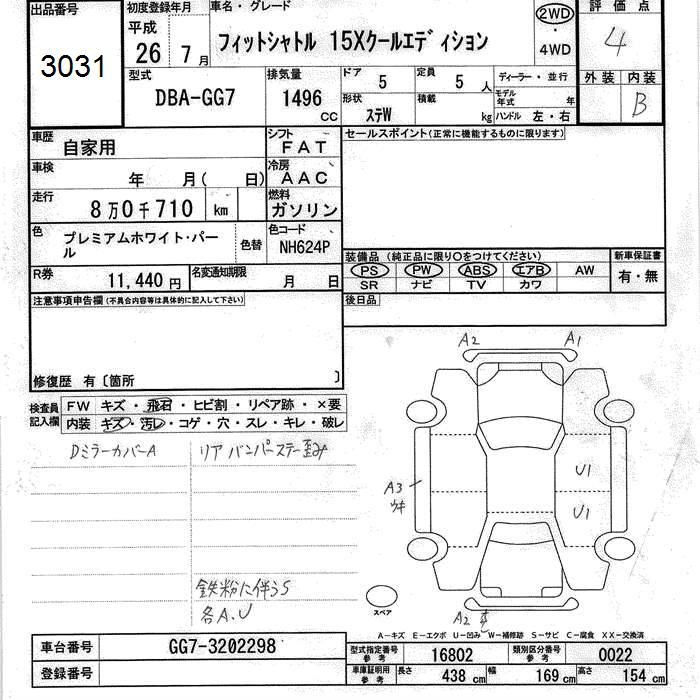 出品番号 3031
初度登録年月 平成 26 7月
車名・グレード フィットシャトル 15Xクールエディション
2WD・4WD
評価点 4
型式 DBA-GG7
排気量 1496 cc
ドア 5
定員 5 人
形状 ステW
積載 kg
ディーラー・並行
モデル年式 年
ハンドル 左・右
外装 内装 B
車歴 自家用
シフト FAT
セールスポイント(正常に機能するものに限ります)
車検 年 月( 日)
冷房 AAC
走行 8万0千710 km
燃料 ガソリン
色 プレミアムホワイト・パール
色替
色コード NH624P
装備品(純正品に限り○をつけてください)
新車保証書
PS PW ABS エアB AW
有・無
SR ナビ TV カワ
R券 11,440円
名変通知期限 月 日
後日品
注意事項申告欄(不具合内容等は具体的に記入して下さい)
修復歴 有〔箇所 〕
検査員記入欄
FW キズ・飛石・ヒビ割・リペア跡・×要
内装 キズ・汚レ・コゲ・穴・スレ・キレ・破レ
Dミラーカバー A
リア バンパーステー歪み
鉄粉に伴うS
各A.U
A2 A1
U1
A3
ウキ
U1
スペア
A2
A-キズ E-エクボ U-凹み W-補修跡 S-サビ C-腐食 XX-交換済
車台番号 GG7-3202298
登録番号
型式指定番号 参考 16802
類別区分番号 参考 0022
車庫証明用 参考 長さ 438 cm 幅 169 cm 高さ 154 cm